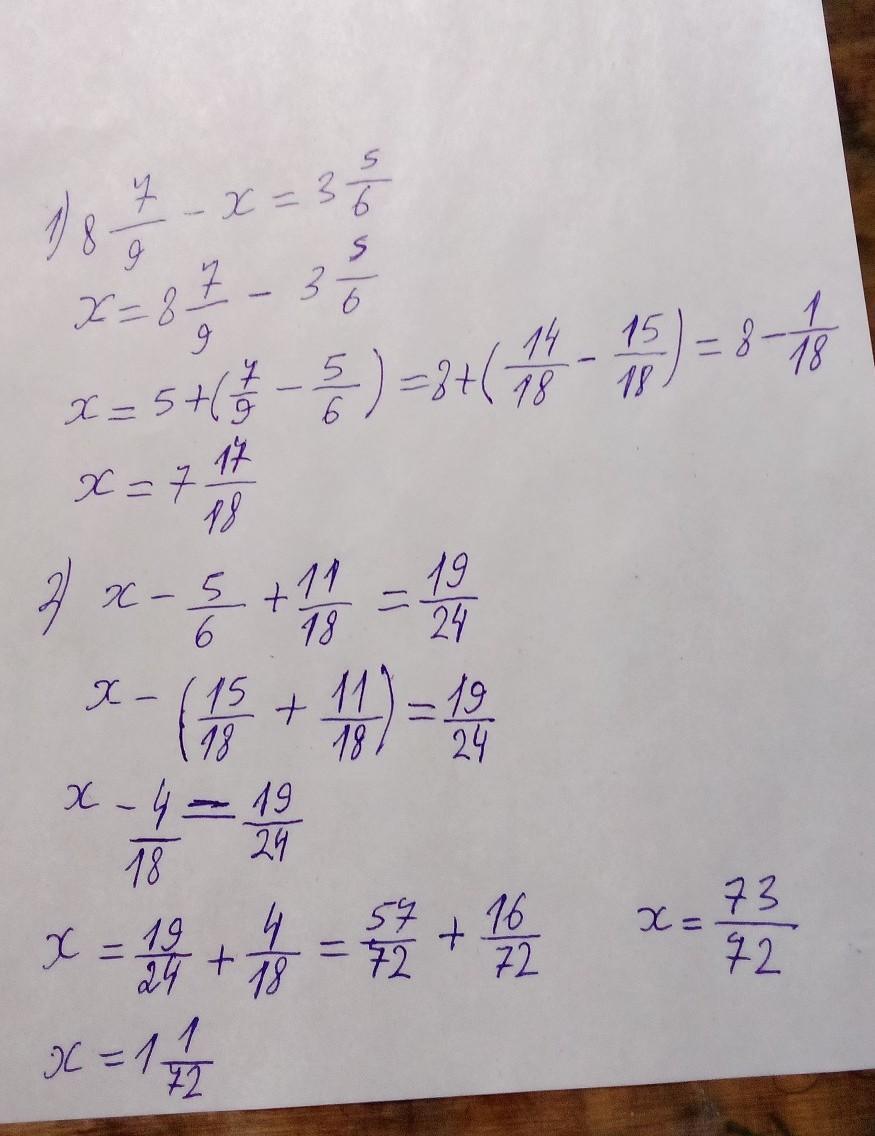 1) 8 7/9 - x = 3 5/6
x = 8 7/9 - 3 5/6
x = 5 + (7/9 - 5/6) = 8 + (14/18 - 15/18) = 8 - 1/18
x = 7 17/18
2) x - 5/6 + 11/18 = 19/24
x - (15/18 + 11/18) = 19/24
x - 4/18 = 19/24
x = 19/24 + 4/18 = 57/72 + 16/72 x = 73/72
x = 1 1/72